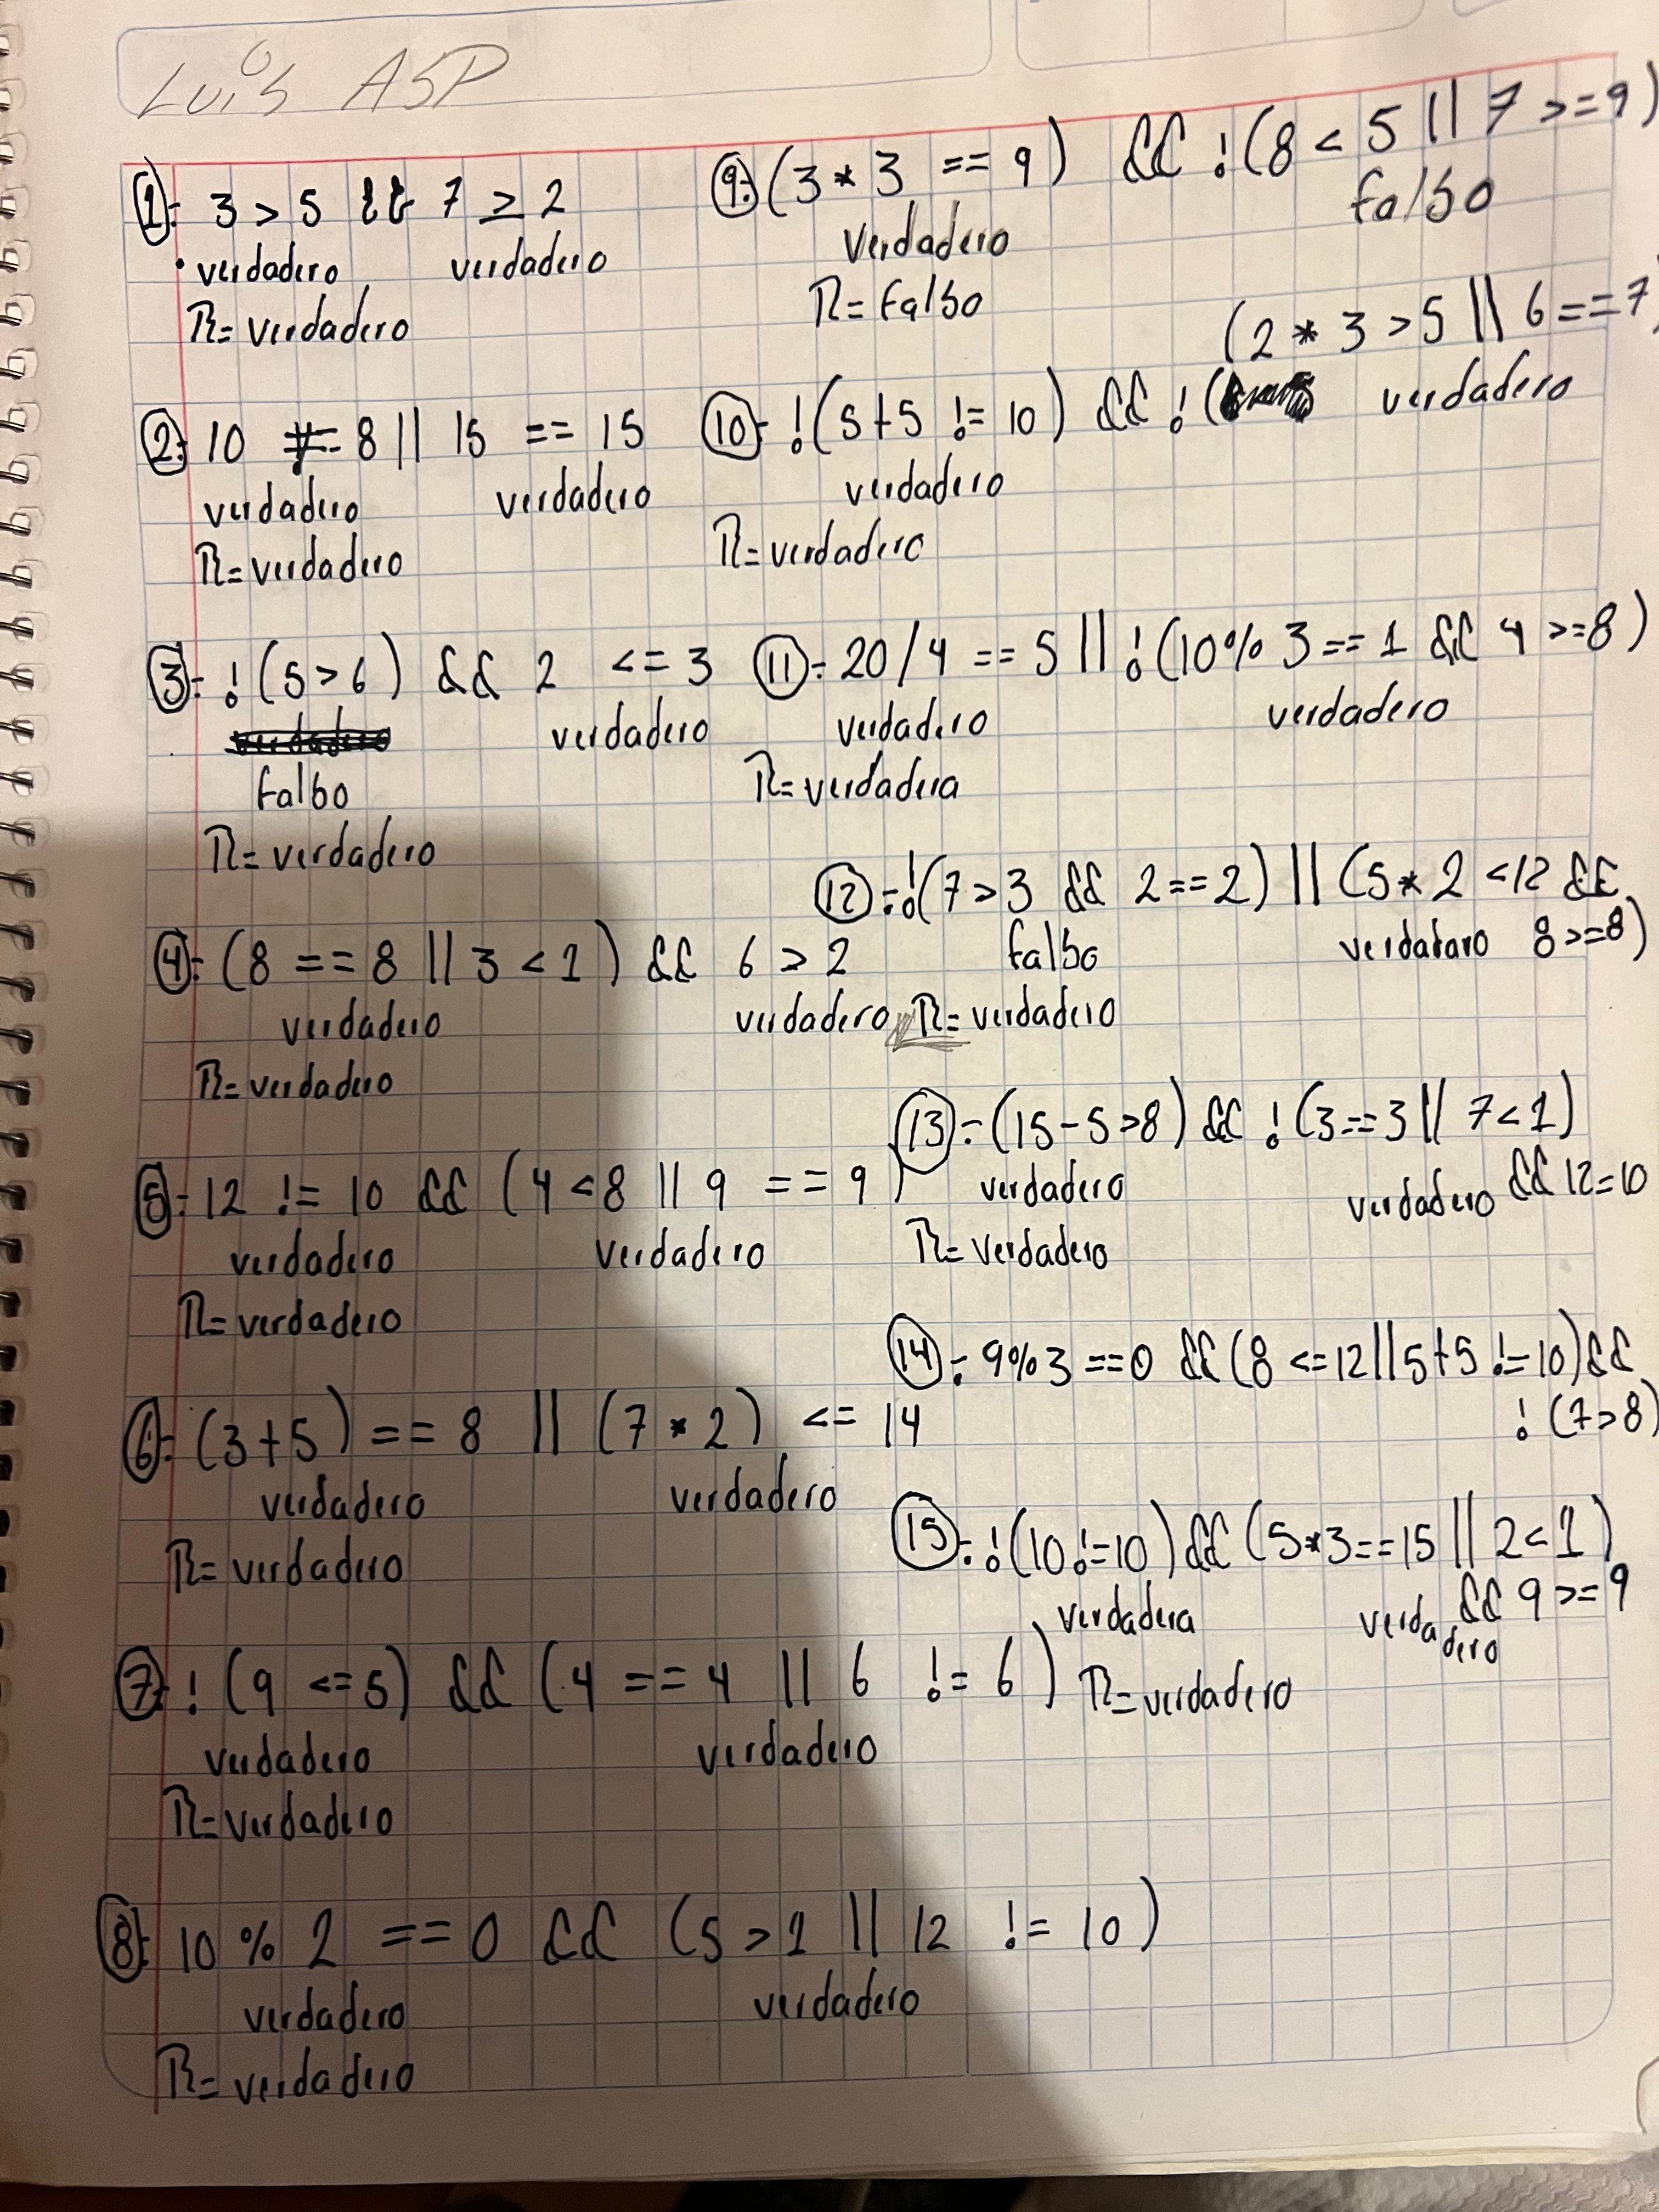 Luis ASP
1: 3 > 5 && 7 ≥ 2
verdadero verdadero
R= verdadero
2: 10 != 8 || 15 == 15
verdadero verdadero
R= verdadero
3: !(5>6) && 2 <= 3
verdadero
falso
R= verdadero
4: (8 == 8 || 3 < 1) && 6 > 2
verdadero verdadero
R= verdadero
5: 12 != 10 && (4 < 8 || 9 == 9)
verdadero verdadero
R= verdadero
6: (3+5) == 8 || (7 * 2) <= 14
verdadero verdadero
R= verdadero
7: ! (9 <= 5) && (4 == 4 || 6 != 6)
verdadero verdadero
R= verdadero
8: 10 % 2 == 0 && (5 > 1 || 12 != 10)
verdadero verdadero
R= verdadero
9: (3 * 3 == 9) && !(8 < 5 || 7 >= 9)
Verdadero falso
R= falso
(2 * 3 > 5 || 6 == 7)
10: !(5+5 != 10) && !( verdadero
verdadero
R= verdadero
11: 20/4 == 5 || !(10% 3 == 1 && 4 >= 8)
verdadero verdadero
R= verdadera
12: !(7 > 3 && 2 == 2) || (5 * 2 < 12 &&
falso verdadaro 8 >= 8)
R= verdadero
13: (15 - 5 > 8) && !(3 == 3 || 7 < 1)
verdadero verdadero && 12 = 10
R= verdadero
14: 9%3 == 0 && (8 <= 12 || 5+5 != 10) &&
! (7 > 8)
15: !(10 != 10) && (5*3 == 15 || 2 < 1)
verdadera verdadero && 9 >= 9
R= verdadero